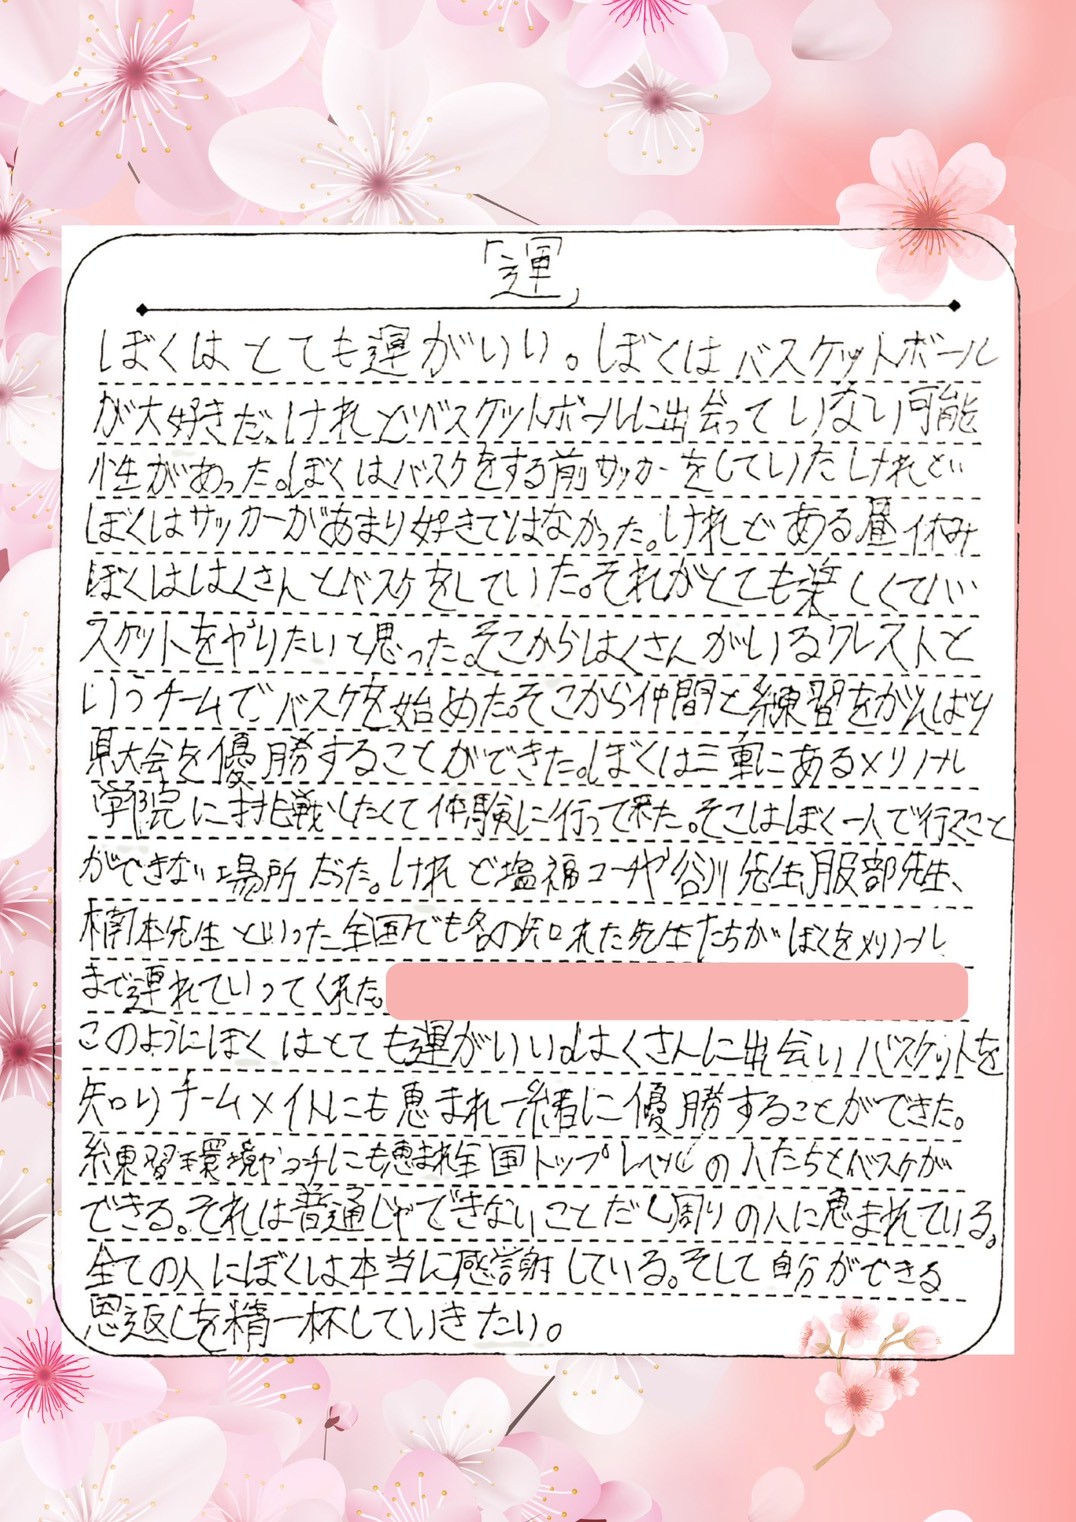 「運」
ぼくはとても運がいい。ぼくはバスケットボール
が大好きだ、けれどバスケットボールに出会っていない可能
性があった。ぼくはバスケをする前サッカーをしていたけれど
ぼくはサッカーがあまり好きではなかった。けれどある昼休み
ぼくははくさんとバスケをしていた。それがとても楽しくてバ
スケットをやりたいと思った。そこからはくさんがいるクレストと
いうチームでバスケを始めた。そこから仲間と練習をがんばり
県大会を優勝することができた。ぼくは三重にあるメリノール
学院に挑戦したくて体験に行って来た。そこはぼく一人で行くこと
ができない場所だった。けれど塩福コーチや谷川先生、服部先生、
楠本先生といった全国でも名の知れた先生たちがぼくをメリノール
まで連れていってくれた。
このようにぼくはとても運がいい。はくさんに出会いバスケットを
知りチームメイトにも恵まれ一緒に優勝することができた。
練習環境やコーチにも恵まれ全国トップレベルの人たちとバスケが
できる。それは普通じゃできないことだし周りの人に恵まれている。
全ての人にぼくは本当に感謝している。そして自分ができる
恩返しを精一杯していきたい。